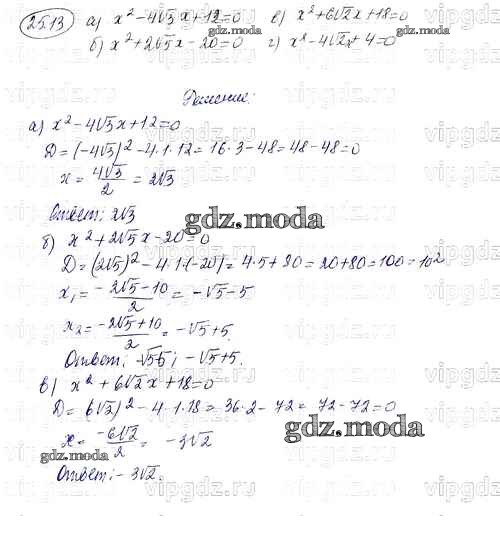 25.13 а) x² - 4√3 x + 12 = 0 в) x² + 6√2 x + 18 = 0
б) x² + 2√5 x - 20 = 0 г) x² - 4√2 x + 4 = 0
Решение:
а) x² - 4√3 x + 12 = 0
D = (-4√3)² - 4·1·12 = 16·3 - 48 = 48 - 48 = 0
x = 4√3/2 = 2√3
Ответ: 2√3
gdz.moda
gdz.moda
б) x² + 2√5 x - 20 = 0
D = (2√5)² - 4·1·(-20) = 4·5 + 80 = 20 + 80 = 100 = 10²
x₁ = -2√5 - 10/2 = -√5 - 5
x₂ = -2√5 + 10/2 = -√5 + 5.
Ответ: -√5-5; -√5+5.
в) x² + 6√2 x + 18 = 0
D = 6√2)² - 4·1·18 = 36·2 - 72 = 72 - 72 = 0
x = -6√2/2 = -3√2
gdz.moda
gdz.moda
Ответ: -3√2.
vipgdz.ru